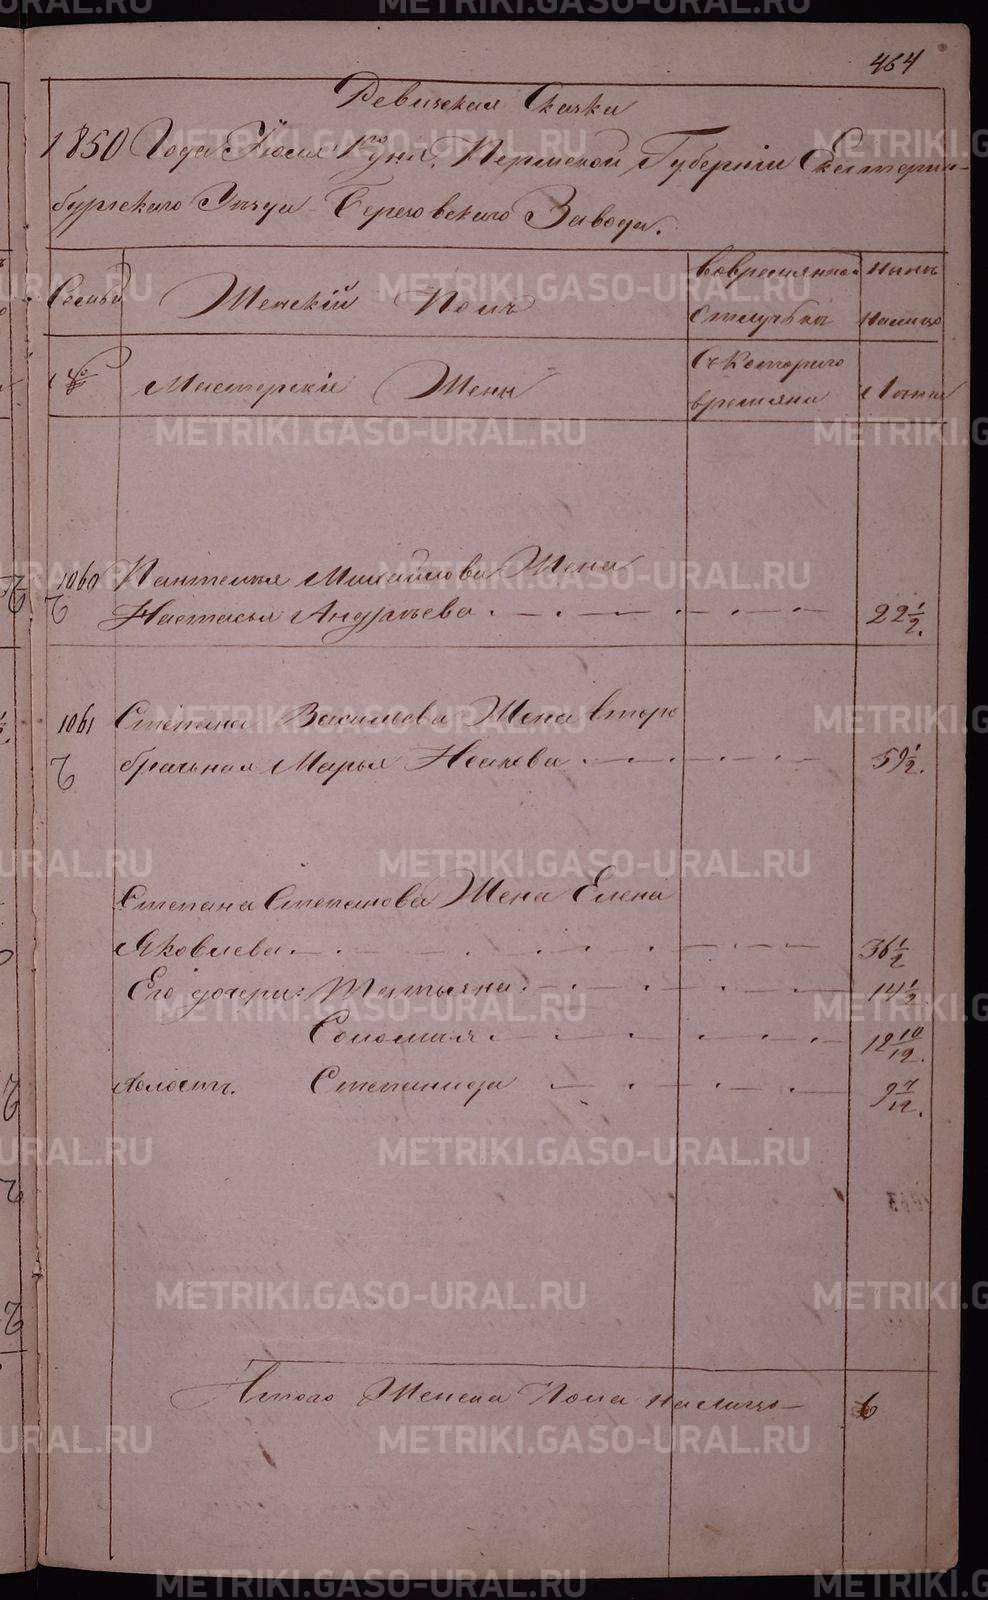 464
Ревижская Скаска
1850 Года Июля дня, Пермской Губернiи Екатерин-
бургского Уезда Березовского Завода.
Семьи Женскiй Полъ вовременной отлучьки ныне налицо
№ Мастерскiе Жены Съ Которого времяни Лета
1060 Пантелея Михайлова Жена
2 Настасья Андреева 22 1/2.
1061 Степана Васильева Жена вторo
2 брачная Марья Исакова 59 1/2.
Степана Степанова Жена Елена
Яковлева 36 1/2
Его дочери: Татьяна 14 1/2
Соломия 12 10/12.
холостъ. Степанида 9 7/12.
Итого Женска Пола налицо 6
METRIKI.GASO-URAL.RU